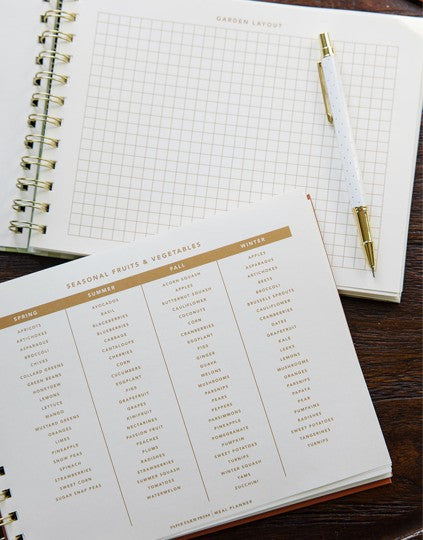 GARDEN LAYOUT
SEASONAL FRUITS & VEGETABLES
SPRING
APRICOTS
ARTICHOKES
ASPARAGUS
BROCCOLI
CHIVES
COLLARD GREENS
GREEN BEANS
HONEYDEW
LEMONS
LETTUCE
MANGO
MUSTARD GREENS
ORANGES
LIMES
PINEAPPLE
SNOW PEAS
SPINACH
STRAWBERRIES
SWEET CORN
SUGAR SNAP PEAS
SUMMER
AVOCADOS
BASIL
BLACKBERRIES
BLUEBERRIES
CABBAGE
CANTALOUPE
CHERRIES
CORN
CUCUMBERS
EGGPLANT
FIGS
GRAPEFRUIT
GRAPES
KIWIFRUIT
NECTARINES
PASSION FRUIT
PEACHES
PLUMS
RADISHES
STRAWBERRIES
SUMMER SQUASH
TOMATOES
WATERMELON
FALL
ACORN SQUASH
APPLES
BUTTERNUT SQUASH
CAULIFLOWER
COCONUTS
CORN
CRANBERRIES
EGGPLANT
FIGS
GINGER
GUAVA
MELONS
MUSHROOMS
PARSNIPS
PEARS
PEPPERS
PERSIMMONS
PINEAPPLE
POMEGRANATE
PUMPKIN
SWEET POTATOES
TURNIPS
WINTER SQUASH
YAMS
ZUCCHINI
WINTER
APPLES
ASPARAGUS
ARTICHOKES
BEETS
BROCCOLI
BRUSSELS SPROUTS
CAULIFLOWER
CRANBERRIES
DATES
GRAPEFRUIT
KALE
LEEKS
LEMONS
MUSHROOMS
ORANGES
PARSNIPS
PAPAYA
PEAR
PUMPKIN
RADISHES
SWEET POTATOES
TANGERINES
TURNIPS
MEAL PLANNER